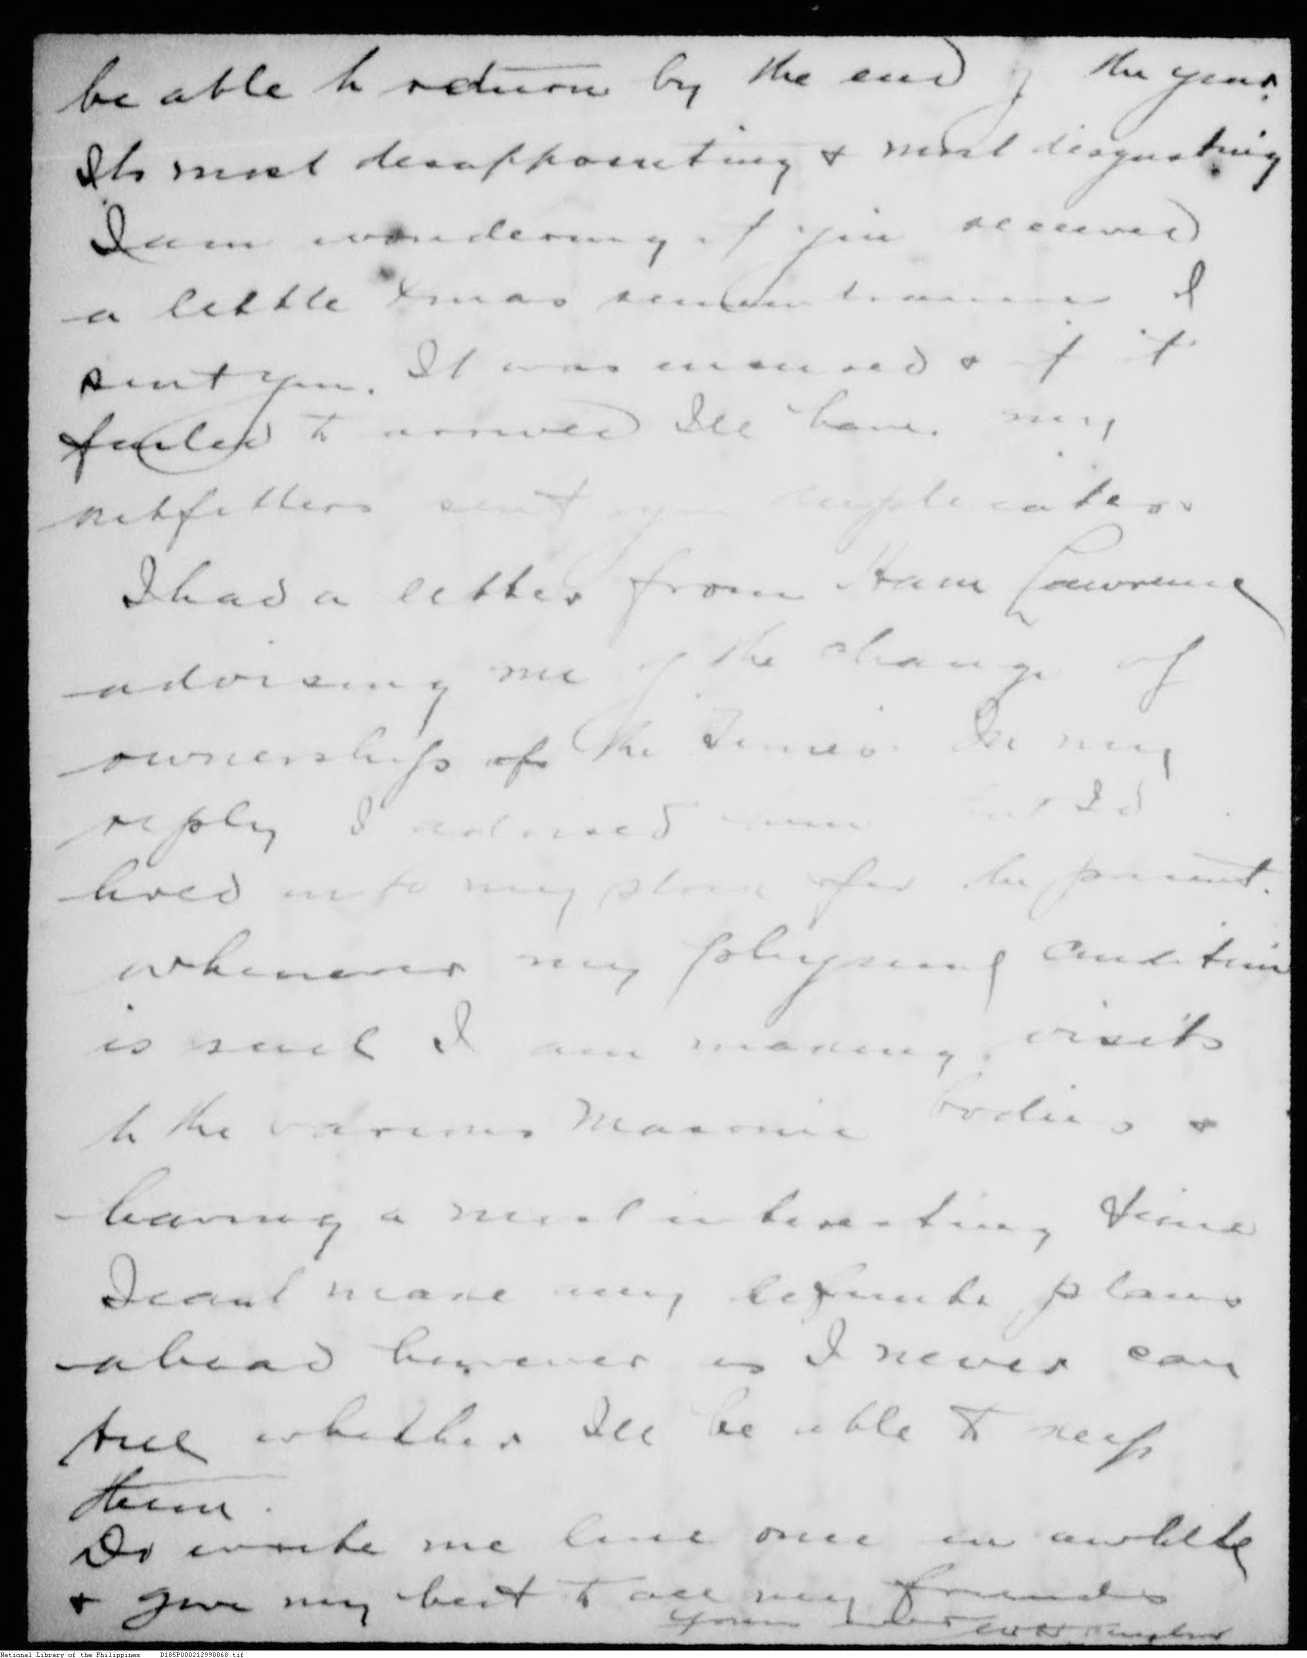 be able to return by the end of the year.
Its most desappointing & most disgusting
I am wondering if you received
a little Xmas remembrance I
sent you. It was insured & if it
failed to arrived Ill have my
outfitters sent you duplicates.
I had a letter from Ham Lawrence
advising me of the change of
ownership of the Times. In my
reply I advised him I'd
lived into my for the present.
whenever my physical condition
is such I am making visits
to the various Masonic bodies &
having a most interesting time
I cant make any definite plans
ahead however as I never can
tell whether Ill be able to keep
them.
Do write me line once in awhile
& give my best to all my friends
Yours
National Library of the Philippines D185P000212990068.tif